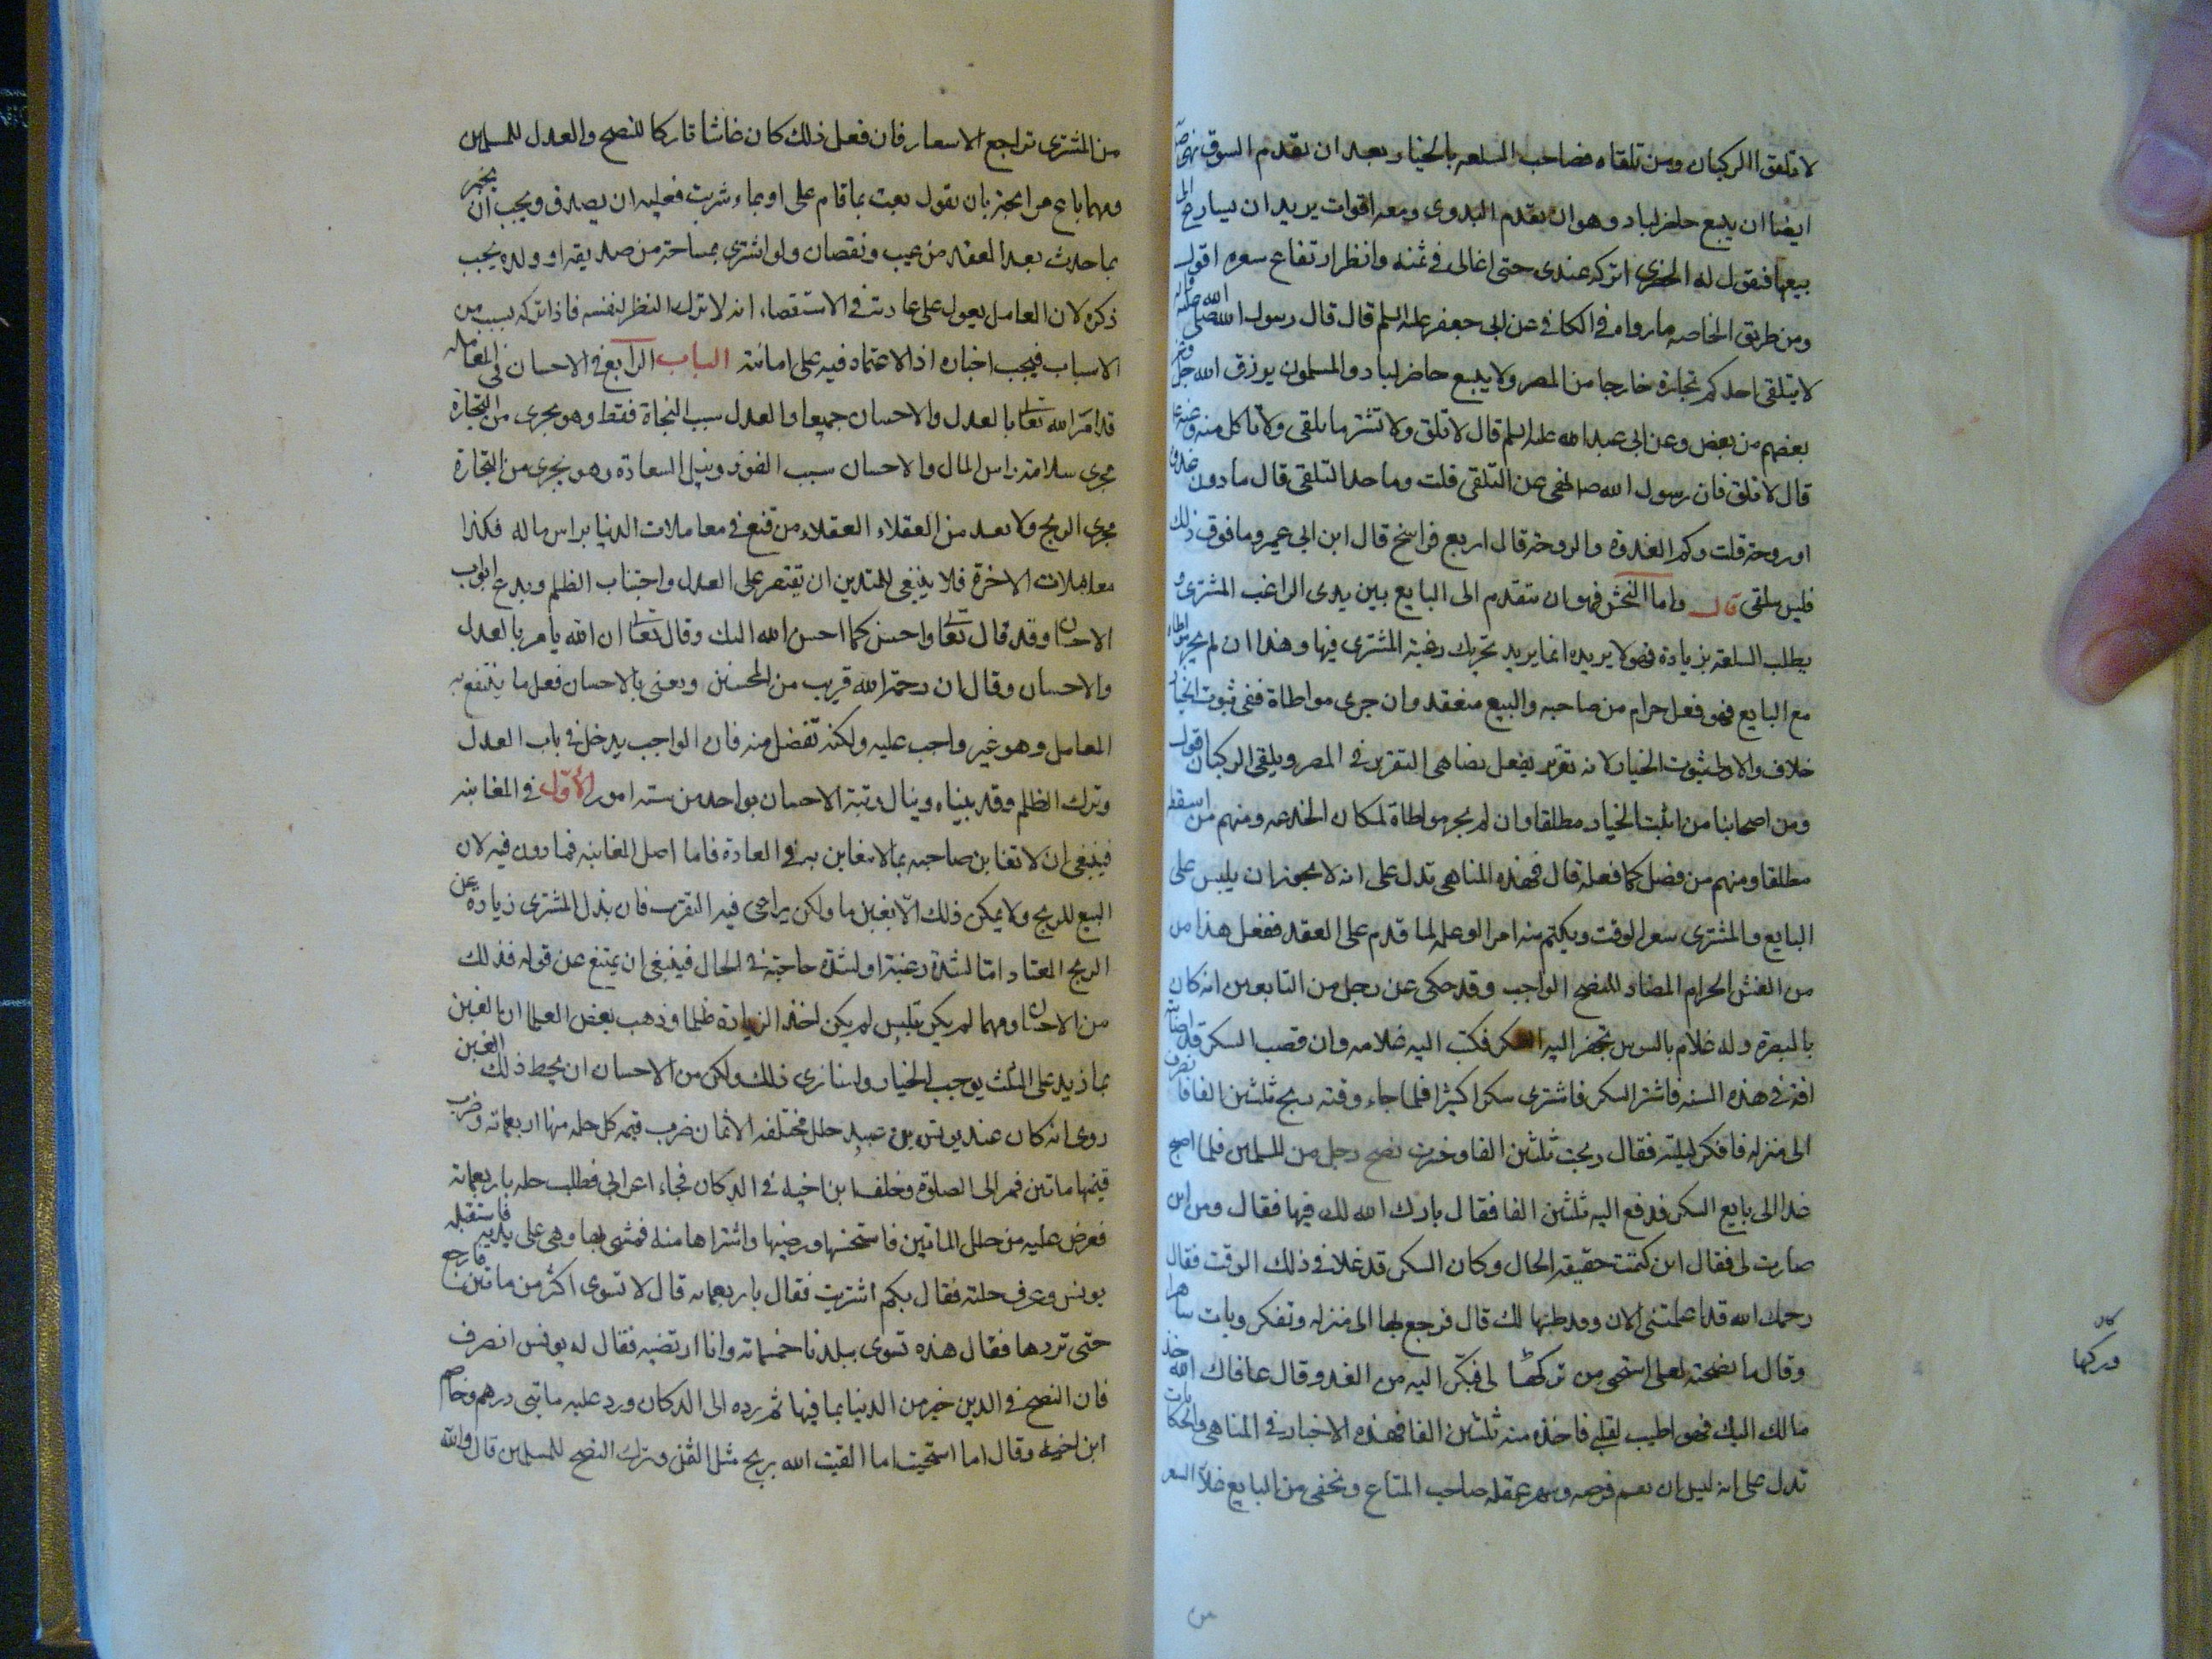 لا تلقوا الركبان ومن تلقاه فصاحب السلعه بالخيار بعد ان يقدم السوق نهى ص
ايضا ان يبيع حاضر لباد وهو ان يقدم البدوى ومعه اقوات يريد ان يسارع الى
بيعها فيقول له الحضرى اتركه عندى حتى اغالى فى ثمنه وانظر ارتفاع سعره اقول
ومن طريق الخاصه ما رواه فى الكافى عن ابى جعفر عليه السلم قال قال رسول الله صلى الله عليه واله
لا يتلقى احدكم تجارة خارجا من المصر ولا يبيع حاضر لباد والمسلمون يرزق الله عز وجل
بعضهم من بعض وعن ابى عبد الله عليه السلم قال لا تلق ولا تشتر ما يلقى ولا تاكل منه وعنه ع
قال لا تلق فان رسول الله ص نهى عن التلقى قلت وما حد التلقى قال ما دون غدوة
او روحة قلت وكم الغدوة والروحة قال اربع فراسخ قال ابن ابى عمير وما فوق ذلك
فليس بتلقى قال واما النجش فهو ان يتقدم الى البايع بين يدى الراغب المشترى و
يطلب السلعة بزيادة وهو لا يريده انما يريد تحريك رغبة المشترى فيها وهذا ان لم يجر مواطاة
مع البايع فهو فعل حرام من صاحبه والبيع منعقد وان جرى مواطاة ففى ثبوت الخيار
خلاف والاولى ثبوت الخيار لانه تغرير بفعل يضاهى التغرير فى المصر وتلقى الركبان اقول
ومن اصحابنا من اثبت الخيار مطلقا وان لم يجر مواطاة لمكان الخدعه ومنهم من اسقط
مطلقا ومنهم من فصل كما فعله قال فهذه المناهى تدل على انه لا يجوز ان يلبس على
البايع والمشترى سعر الوقت ويكتم منه امرا لو علمه لما قدم على العقد ففعل هذا من
من الغش الحرام المضاد للنصح الواجب وقد حكى عن رجل من التابعين انه كان
بالبصرة وله غلام بالسوس تجهز اليه السكر فكتب اليه غلامه وان قصب السكر قد اصابته
افة فى هذه السنه فاشتر السكر فاشترى سكرا كثيرا فلما جاء وقته ربح ثلثين الفا فانصرف
الى منزله فافكر ليلته فقال ربحت ثلثين الفا وخسرت نصح رجل من المسلمين فلما اصبح
غدا الى بايع السكر فدفع اليه ثلثين الفا فقال بارك الله لك فيها فقال ومن اين
صارت لى فقال انى كتمتك حقيقة الحال وكان السكر قد غلا فى ذلك الوقت فقال
رحمك الله قد اعلمتنى الان وقد طيبتها لك قال فرجع بها الى منزله وتفكر وبات ساهرا
وقال ما نصحته لعله استحى من تركها لى فبكر اليه من الغد وقال عافاك الله خذ
مالك اليك فهو اطيب لقلبى فاخذ منه ثلثين الفا فهذه الاخبار فى المناهى والحكايات
تدل على انه ليس له ان يغتنم فرصة وينتهز غفلة صاحب المتاع ويخفى من البايع غلاء السعر
وتركها
من المشترى تراجع الاسعار فان فعل ذلك كان غاشا تاركا للنصح والعدل للمسلمين
ومهما باع مرابحة بان يقول بعت بما قام على او بما اشتريت فعليه ان يصدق ويجب ان يخبر
بما حدث بعد العقد من عيب ونقصان ولو اشترى بمسامحة من صديقه او ولده يجب
ذكره لان العامل يعول على عادته فى الاستقصاء انه لا يترك النظر لنفسه فاذا تركه بسبب من
الاسباب فيجب اخباره اذ الاعتماد فيه على امانته الباب الرابع فى الاحسان فى المعامله
قد امر الله تعالى بالعدل والاحسان جميعا والعدل سبب النجاة فقط وهو يجرى من التجارة
مجرى سلامة راس المال والاحسان سبب الفوز ونيل السعادة وهو يجرى من التجارة
مجرى الربح ولا يعد من العقلاء العقلاء من قنع فى معاملات الدنيا براس ماله فكذا
معاملات الاخرة فلا ينبغى للمتدين ان يقتصر على العدل واجتناب الظلم ويدع ابواب
الاحسان وقد قال تعالى واحسن كما احسن الله اليك وقال تعالى ان الله يامر بالعدل
والاحسان وقال ان رحمة الله قريب من المحسنين ويعنى بالاحسان فعل ما ينتفع به
المعامل وهو غير واجب عليه ولكنه تفضل منه فان الواجب يدخل فى باب العدل
وترك الظلم وقد بيناه وينال رتبة الاحسان بواحد من ستة امور الاول فى المغابنه
فينبغى ان لا يغابن صاحبه بما لا يتغابن به فى العادة فاما اصل المغابنه فماذون فيه لان
البيع للربح ولا يمكن ذلك الا بغبن ما ولكن يراعى فيه التقريب فان بذل المشترى زيادة عن
الربح المعتاد اما لشدة رغبته او لشدة حاجته فى الحال فينبغى ان يمتنع عن قوله فذلك
من الاحسان ومهما لم يكن تلبيس لم يكن اخذ الزيادة ظلما وذهب بعض العلما ان الغبن
بما زيد على الثلث يوجب الخيار ولسنا نرى ذلك ولكن من الاحسان ان يحط ذلك الغبن
روى انه كان عند يونس بن عبيد حلل مختلفه الاثمان ضرب قيمه كل حله منها اربعمائه وضرب
قيمتها ماتين فمر الى الصلوة وخلف ابن اخيه فى الدكان فجاء اعرابى فطلب حله باربعمائه
فعرض عليه من حلل الماتين فاستحسنها ورضيها واشتراها منه فمشى بها وهى على يديه فاستقبله
يونس وعرف حلته فقال بكم اشتريت فقال باربعمائه قال لا تسوى اكثر من ماتين فارجع
حتى تردها فقال هذه تسوى ببلدنا خمسمائه وانا ارتضيه فقال له يونس انصرف
فان النصح فى الدين خير من الدنيا بما فيها ثم رده الى الدكان ورد عليه ماتى درهم وخاصم
ابن اخيه وقال اما استحيت اما اتقيت الله بربح مثل الثمن وترك النصح للمسلمين قال والله